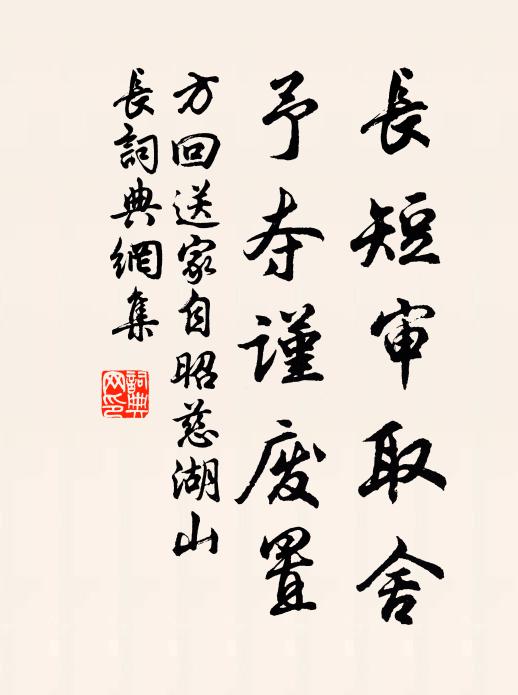 長短审取舍
予夺謹废置
方回送家自昭慈湖山
長詞典網集
詞典网印